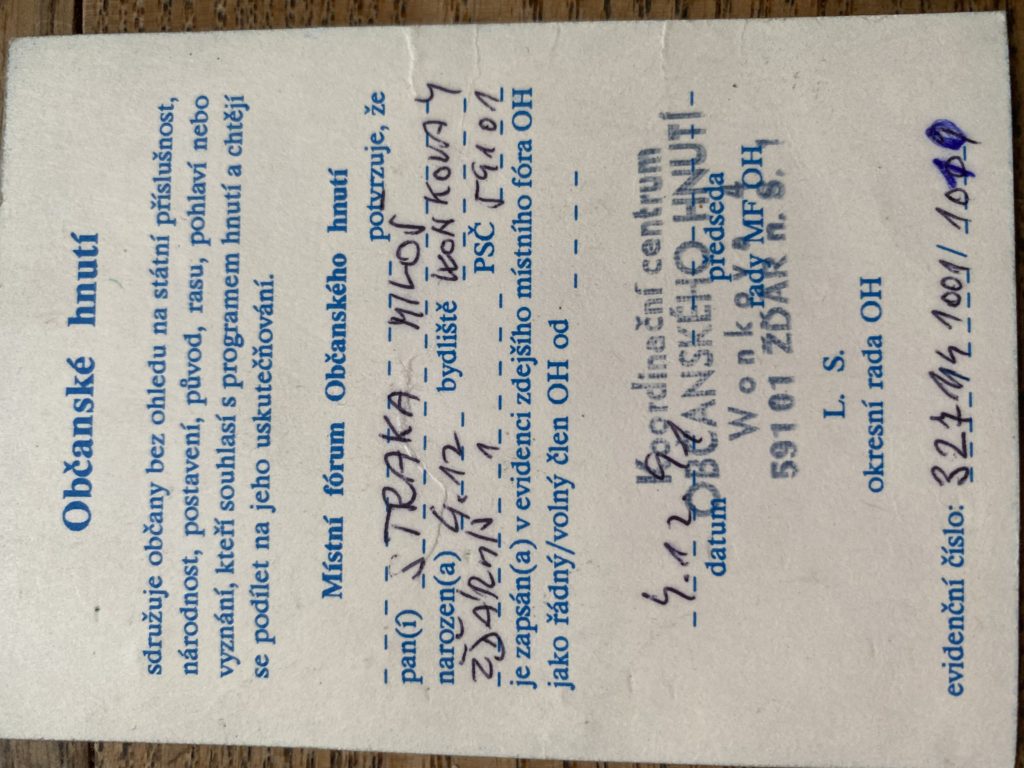 Občanské hnutí
sdružuje občany bez ohledu na státní příslušnost,
národnost, postavení, původ, rasu, pohlaví nebo
vyznání, kteří souhlasí s programem hnutí a chtějí
se podílet na jeho uskutečňování.
Místní fórum Občanského hnutí
potvrzuje, že
pan(í) STRAKA MILOŠ
narozen(a) 4.12 bydliště WONKOVA 4
ŽĎÁR n/S 1 PSČ 59101
je zapsán(a) v evidenci zdejšího místního fóra OH
jako řádný/volný člen OH od
Koordineční centrum
OBČANSKÉHO HNUTÍ
4.12 91
datum předseda
Wonkova 4
rady MF OH
591 01 ŽĎÁR n. S. 1
L. S.
okresní rada OH
evidenční číslo: 32744 1001/